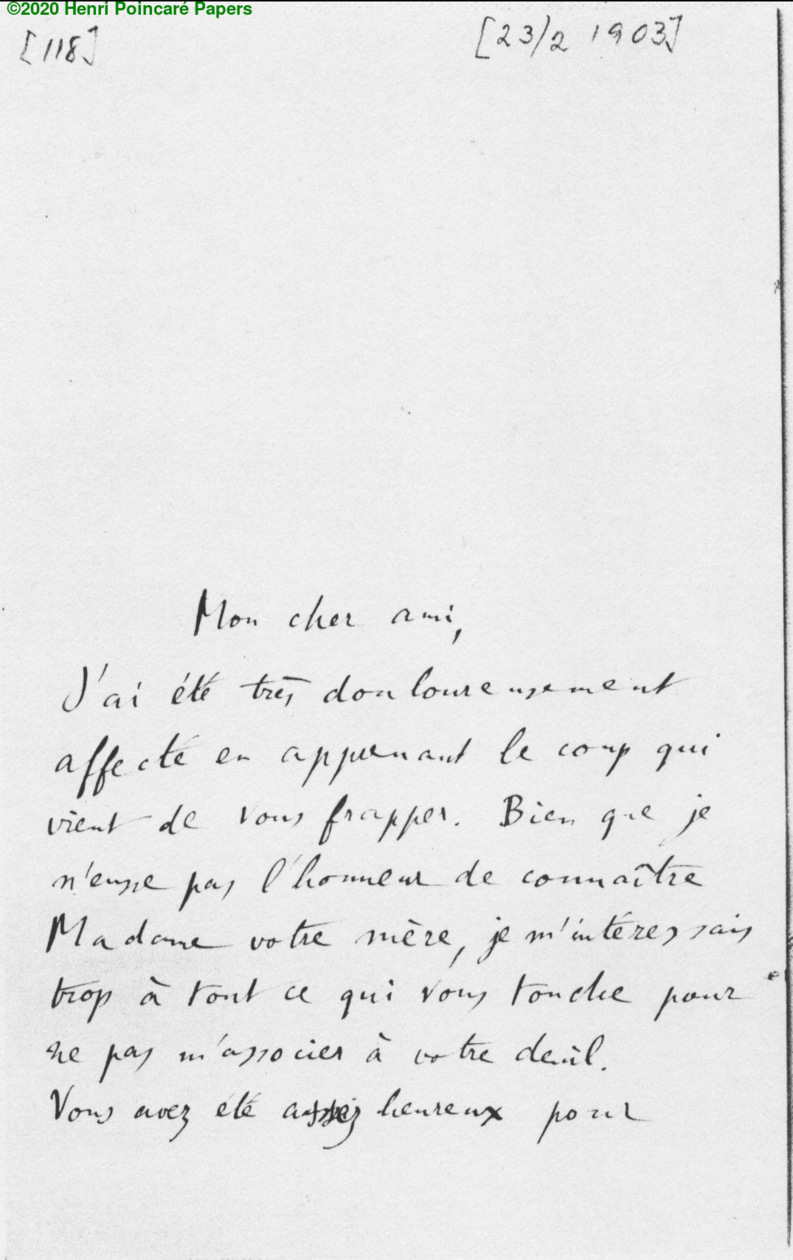 ©2020 Henri Poincaré Papers
[118]
[23/2 1903]
Mon cher ami,
J'ai été très douloureusement
affecté en apprenant le coup qui
vient de vous frapper. Bien que je
n'eusse pas l'honneur de connaître
Madame votre mère, je m'intéressais
trop à tout ce qui vous touche pour
ne pas m'associer à votre deuil.
Vous avez été assez heureux pour